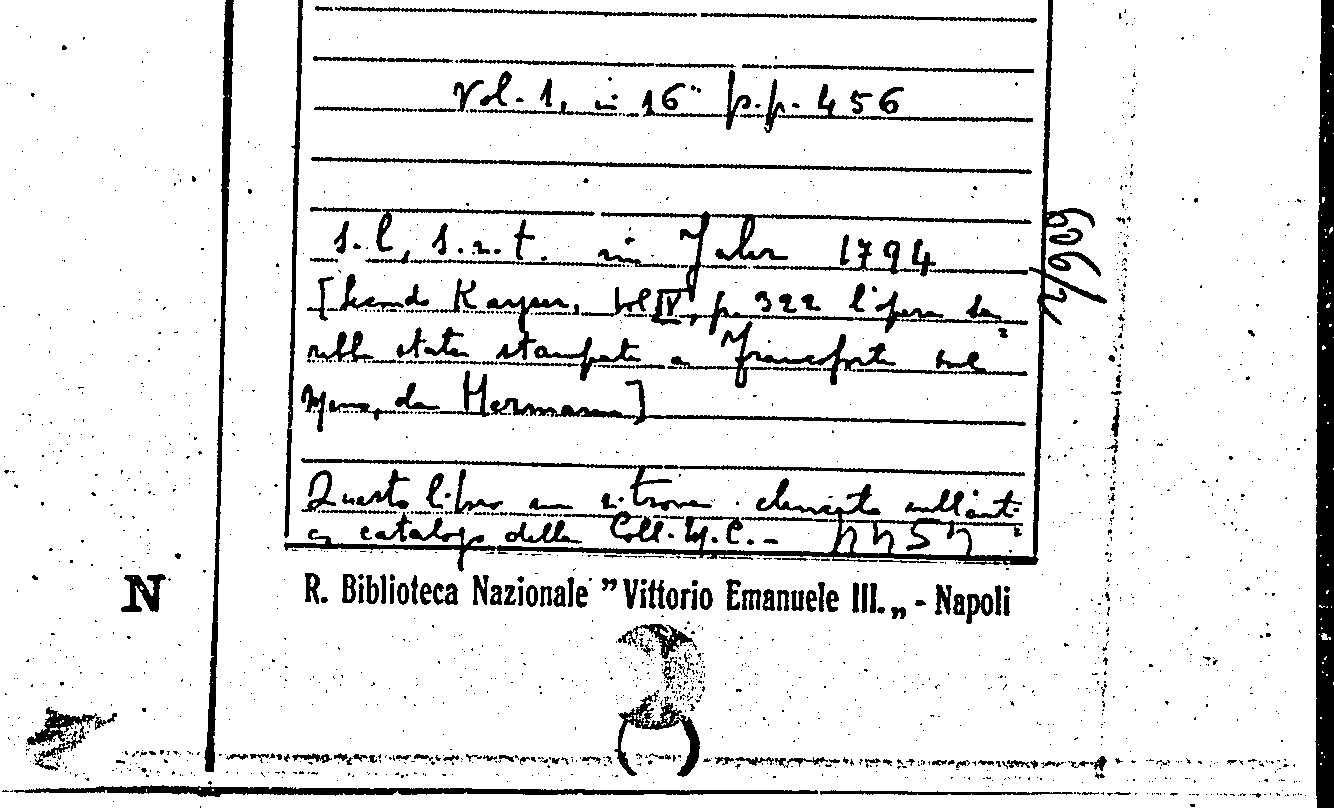 Vol. 1, in 16° p.p. 456
s.l, s.n.t. im Jahr 1794
[Secondo Kayser, vol IV, p. 322 l'opera sa=
rebbe stata stampata a Francoforte sul
Meno, da Hermann]
Questo libro non si trova elencato nell'anti=
co catalogo della Coll. M.C.-
606/2
N
R. Biblioteca Nazionale "Vittorio Emanuele III.„ - Napoli
( )